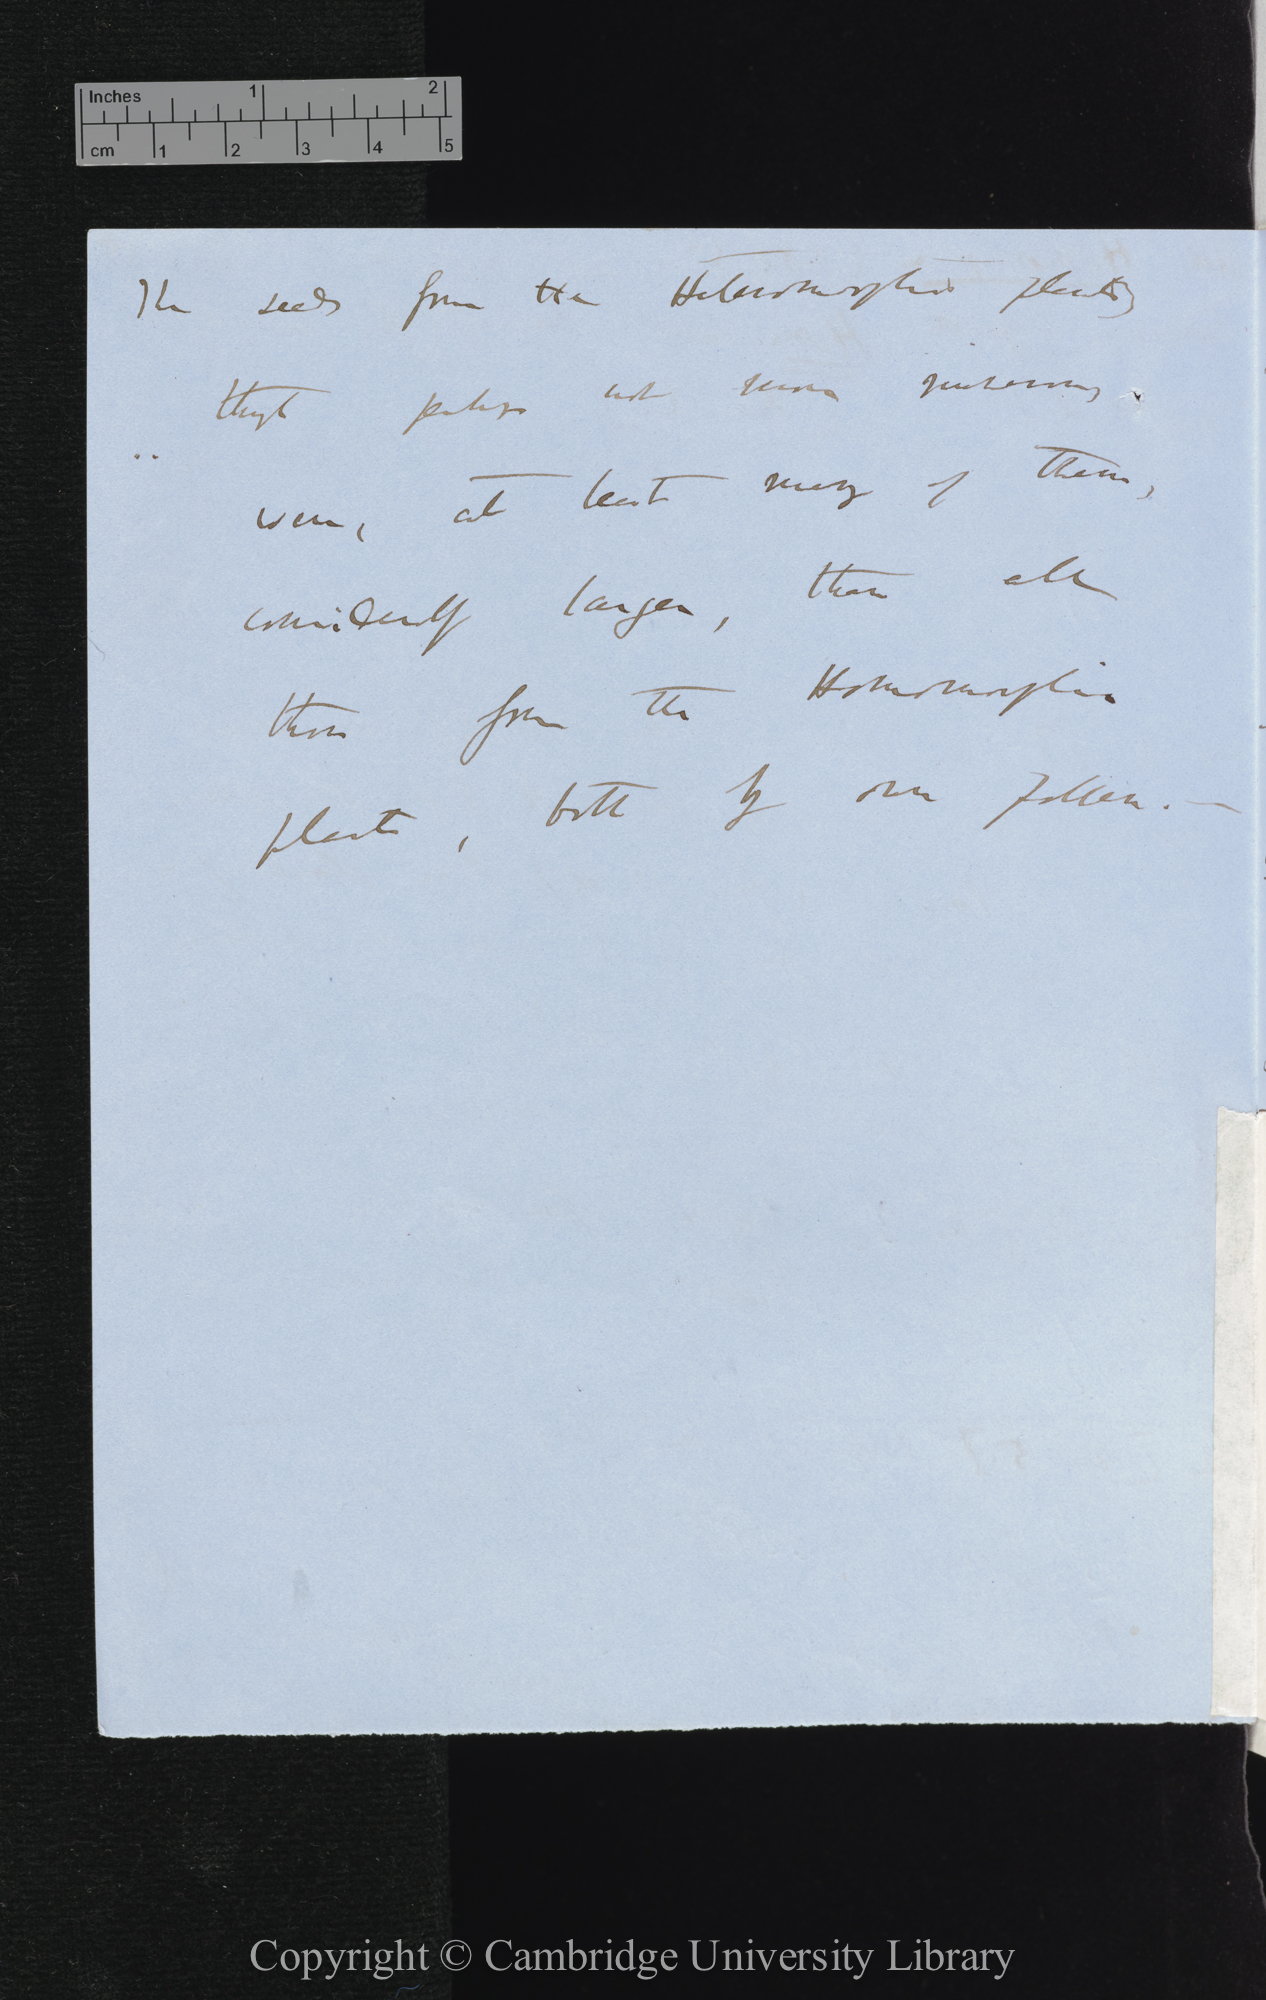 Inches 1 2
cm 1 2 3 4 5
The seeds from the Heteromorphic plants,
though perhaps not more numerous
were, at least many of them,
considerably larger, than all
those from the Homomorphic
plants, both by own pollen. —
Copyright © Cambridge University Library